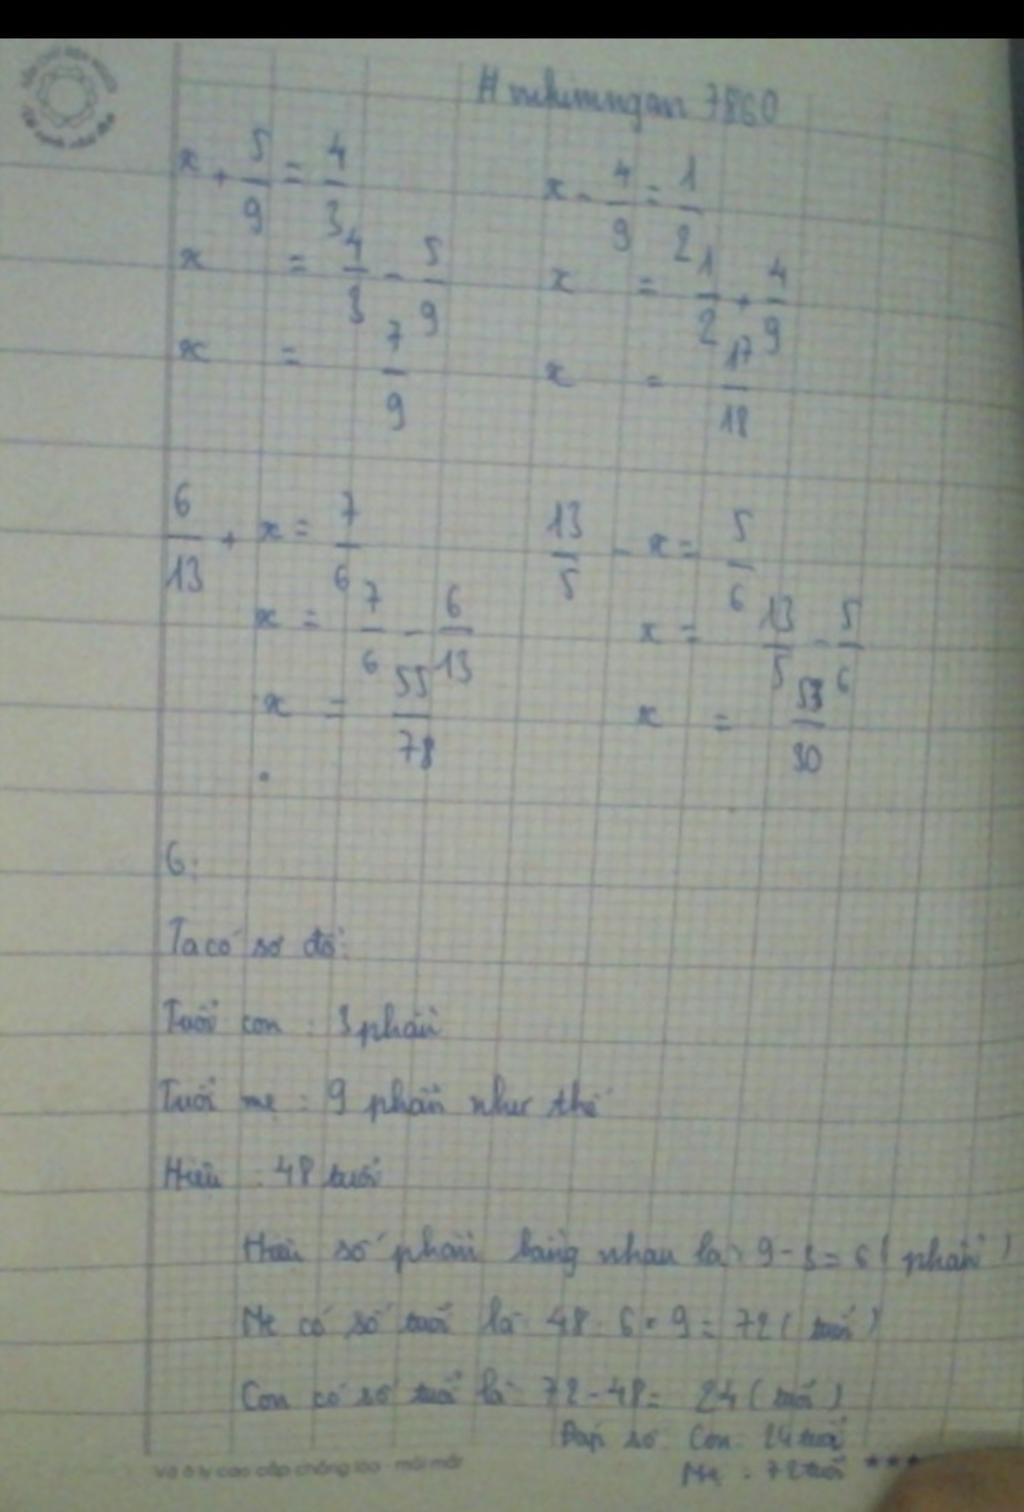 # mkimngan 7860
x + 5/9 = 4/3
x = 4/3 - 5/9
x = 7/9
x - 4/9 = 1/2
x = 1/2 + 4/9
x = 17/18
6/13 + x = 7/6
x = 7/6 - 6/13
x = 55/78
13/5 - x = 5/6
x = 13/5 - 5/6
x = 53/30
6:
Ta có sơ đồ:
Tuổi con : 3 phần
Tuổi mẹ : 9 phần như thế
Hiệu : 48 tuổi
Hiệu số phần bằng nhau là: 9 - 3 = 6 ( phần )
Mẹ có số tuổi là 48 : 6 × 9 = 72 ( tuổi )
Con có số tuổi là 72 - 48 = 24 ( tuổi )
Đáp số Con: 24 tuổi
Mẹ : 72 tuổi
Vở ô ly cao cấp chống lóa - mỏi mắt ★★★